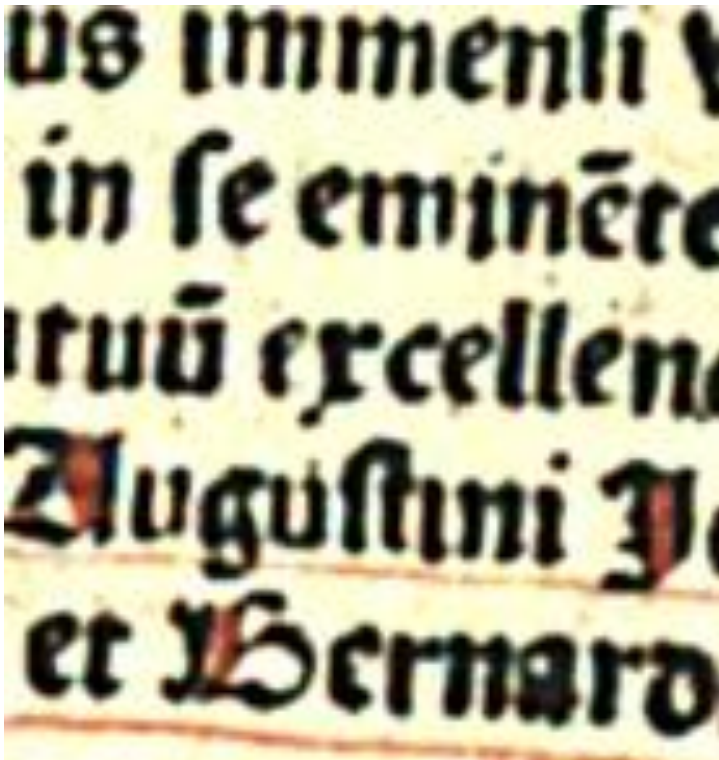 us immenſi
in ſe eminēte
tuū excellen
Auguſtini
et Bernard